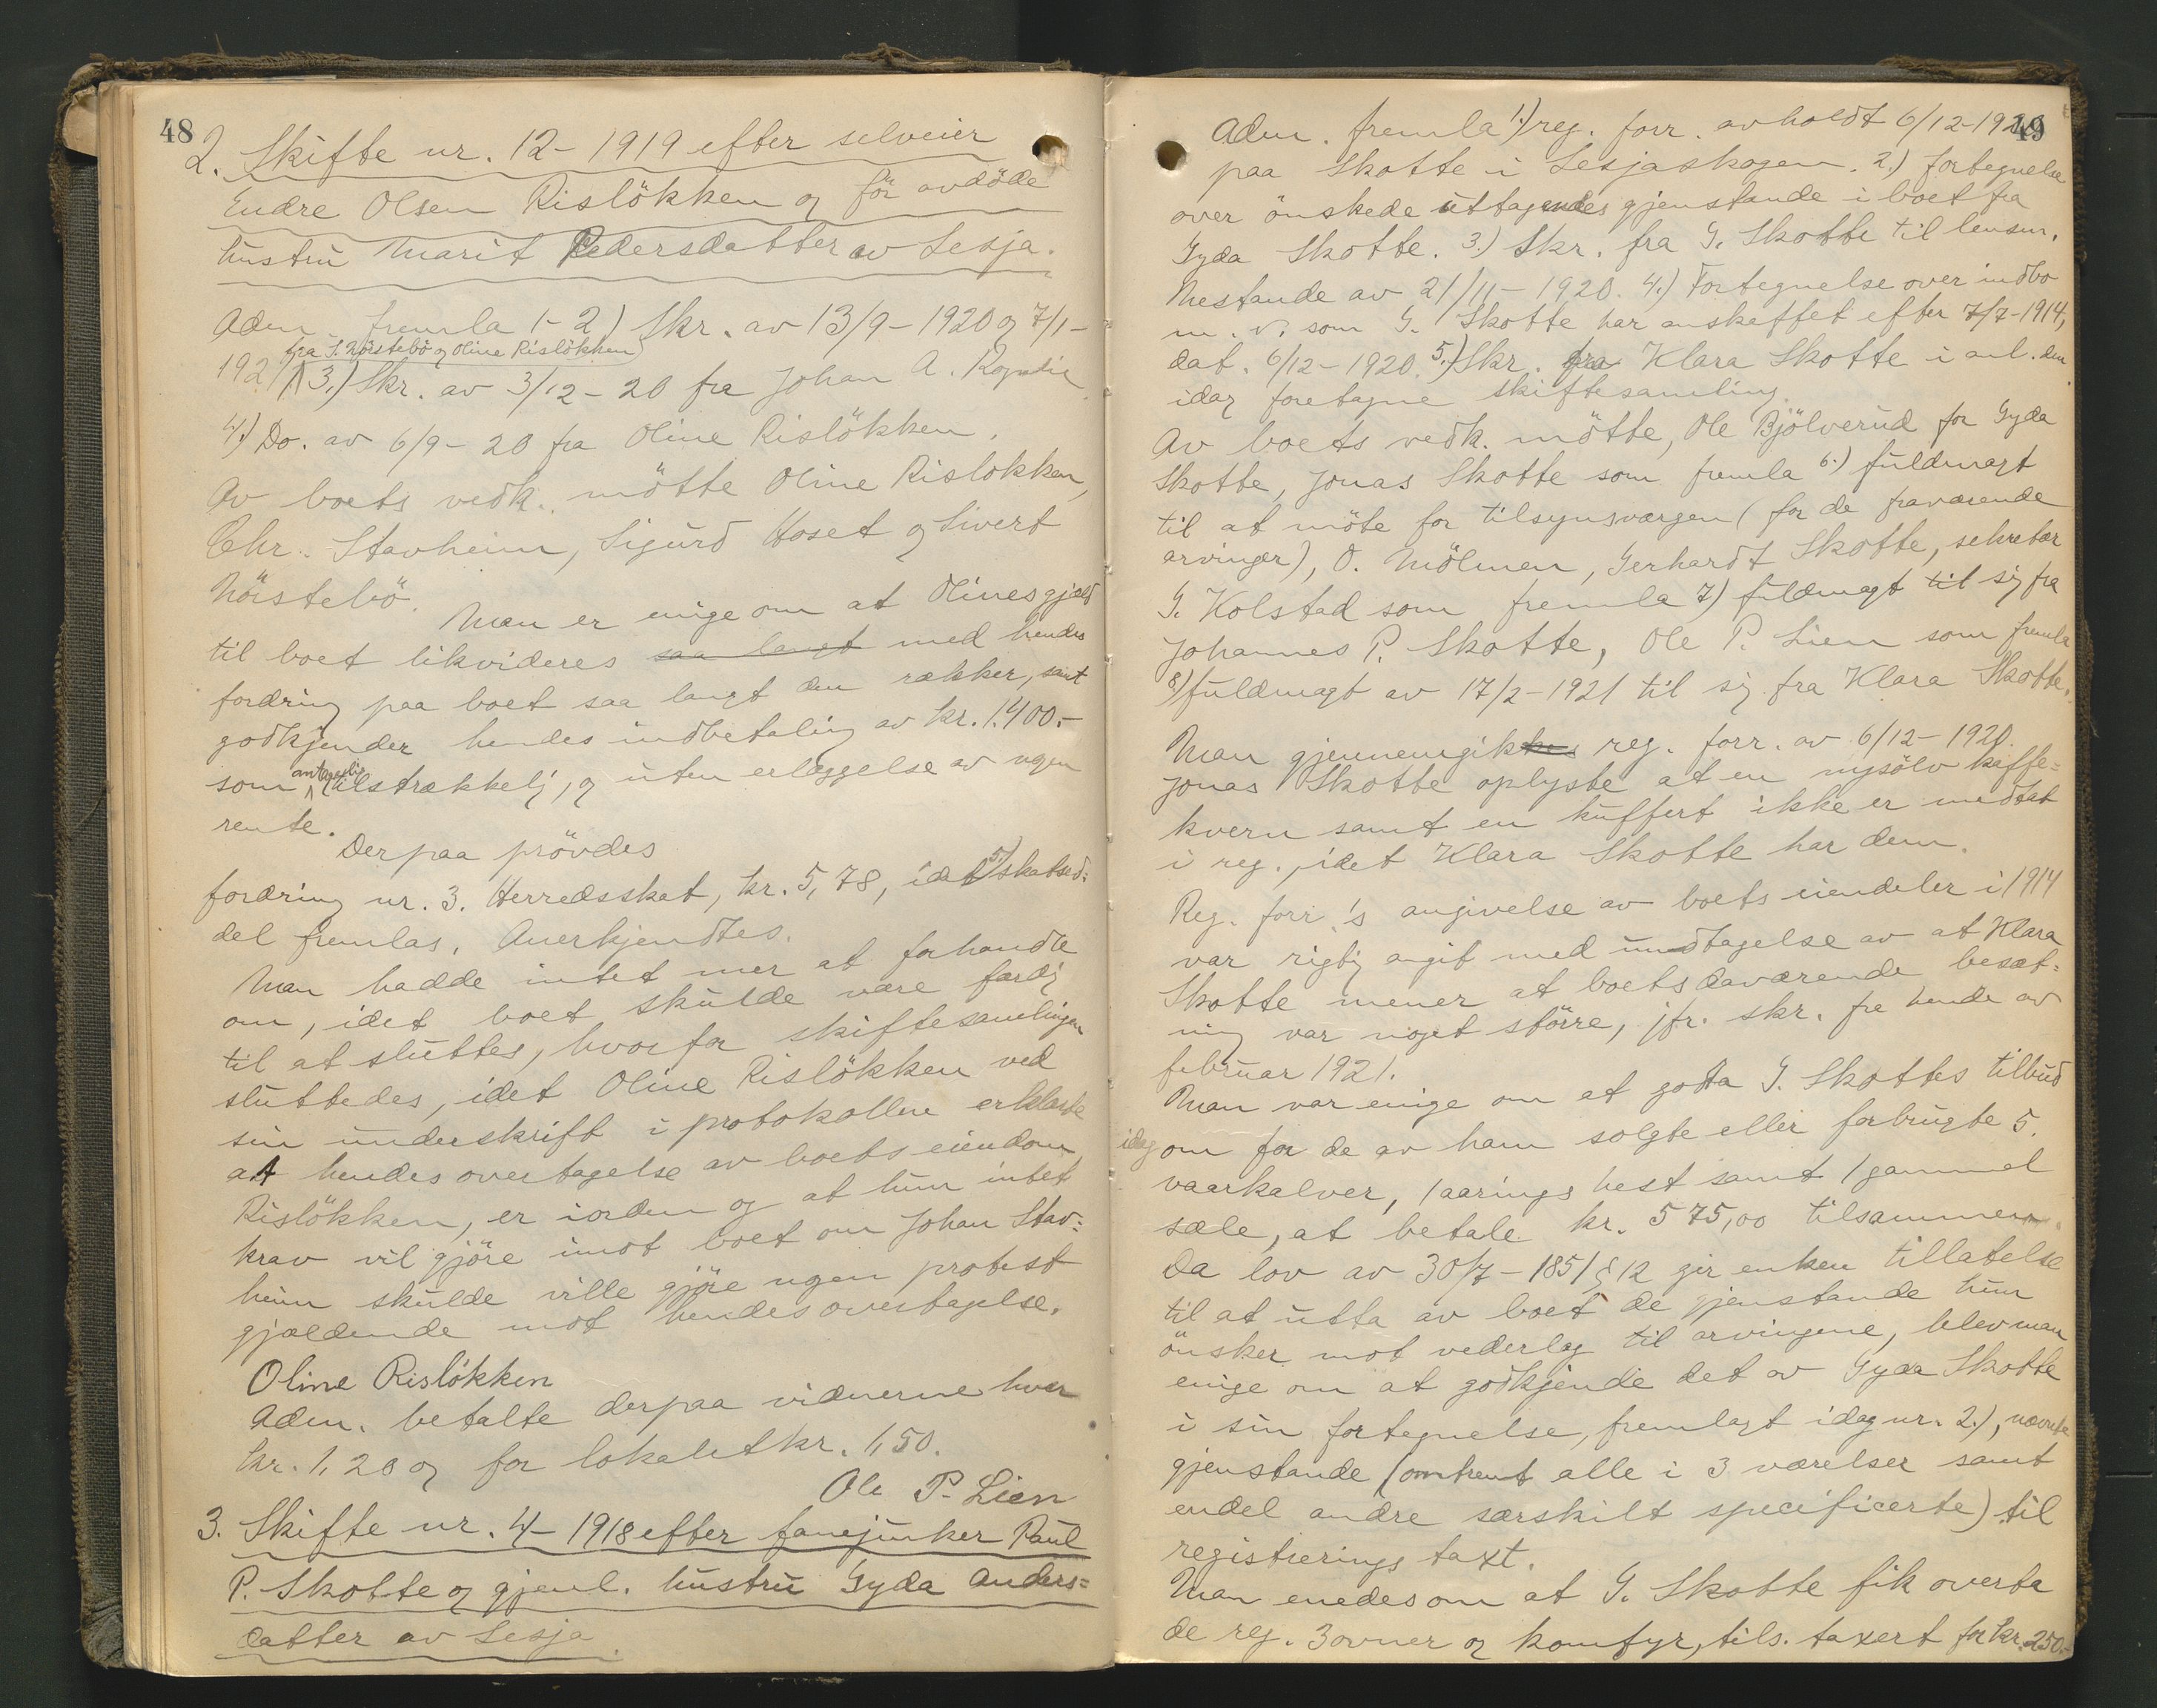 48
2. Skifte nr. 12-1919 efter selveier
Endre Olsen Rislökken og för avdöde
hustru Marit Pedersdatter av Lesja.
Adm. fremla 1-2) Skr. av 13/9-1920 og 7/1-
fra S. Nörstebö og Oline Rislökken
1921 3.) Skr. av 3/12-20 fra Johan A.
4.) Do. av 6/9-20 fra Oline Rislökken.
Av boets vedk. mötte Oline Rislökken,
Chr. Stavheim, Sigurd Hoset og Sivert
Nörstebö.
Man er enige om at Olines gjæld
til boet likvideres saa langt med hendes
fordring paa boet saa langt den rækker, samt
godkjender hendes indbetaling av kr. 1.400.-
som antagelig tilstrækkelig, og uten erlæggelse av nogen
rente.
Derpaa prövdes
fordring nr. 3. Herredsskat, kr. 5,78, idet 5) skatsed=
del fremlas. Anerkjendtes.
Man hadde intet mer at forhandle
om, idet boet skulde være færdig
til at sluttes, hvorfor skiftesamlingen
sluttedes, idet Oline Rislökken ved
sin underskrift i protokollen erklærte
at hendes overtagelse av boets eiendom
Rislökken, er iorden og at hun intet
krav vil gjöre imot boet om Johan Stav=
heim skulde ville gjöre nogen protest
gjældende mot hendes overtagelse.
Oline Rislökken
Adm. betalte derpaa vidnerne hver
kr. 1,20 og for lokalet kr. 1,50.
Ole P. Lien
3. Skifte nr. 4-1918 efter fanejunker Paul
P. Skotte og gjenl. hustru Gyda Anders=
datter av Lesja.
49
Adm. fremla 1.) reg. forr. avholdt 6/12-1920
paa Skotte i Lesjaskogen. 2.) fortegnelse
over önskede uttagendes gjenstande i boet fra
Gyda Skotte. 3.) Skr. fra G. Skotte til lensm.
Mestande av 21/11-1920. 4.) Fortegnelse over indbo
m. v. som G. Skotte har anskaffet efter 7/7-1914,
dat. 6/12-1920. 5.) Skr. fra Klara Skotte i anl. den
idag foretagne skiftesamling.
Av boets vedk. mötte, Ole Bjölverud for Gyda
Skotte, Jonas Skotte som fremla 6.) fuldmagt
til at möte for tilsynsværgen (for de fraværende
arvinger), O. Mölmen, Gerhardt Skotte, sekretær
G. Kolstad som fremla 7) fuldmagt til sig fra
Johannes P. Skotte, Ole P. Lien som fremla
8) fuldmagt av 17/2-1921 til sig fra Klara Skotte.
Man gjennemgik reg. forr. av 6/12-1920.
Jonas Skotte oplyste at en nysölv kaffe=
kvern samt en kuffert ikke er medtat
i reg., idet Klara Skotte har dem.
Reg. forr.'s angivelse av boets eiendeler i 1914
var rigtig angit med undtagelse av at Klara
Skotte mener at boets daværende besæt=
ning var noget större, jfr. skr. fra hende av
februar 1921.
Man var enige om at godta G. Skottes tilbud
idag om for de av ham solgte eller forbrugte 5
vaarkalver, 1 aarings hest samt 1 gammel
sæle, at betale kr. 575,00 tilsammen.
Da lov av 30/7-1851 § 12 gir enken tillatelse
til at utta av boet de gjenstande hun
önsker mot vederlag til arvingene, blev man
enige om at godkjende det av Gyda Skotte
i sin fortegnelse, fremlagt idag nr. 2.), nævnte
gjenstande (omtrent alle i 3 værelser samt
endel andre særskilt specificerte) til
registrerings taxt.
Man enedes om at G. Skotte fik overta
de reg. 3 ovner og komfyr, tils. taxert for kr. 250.-